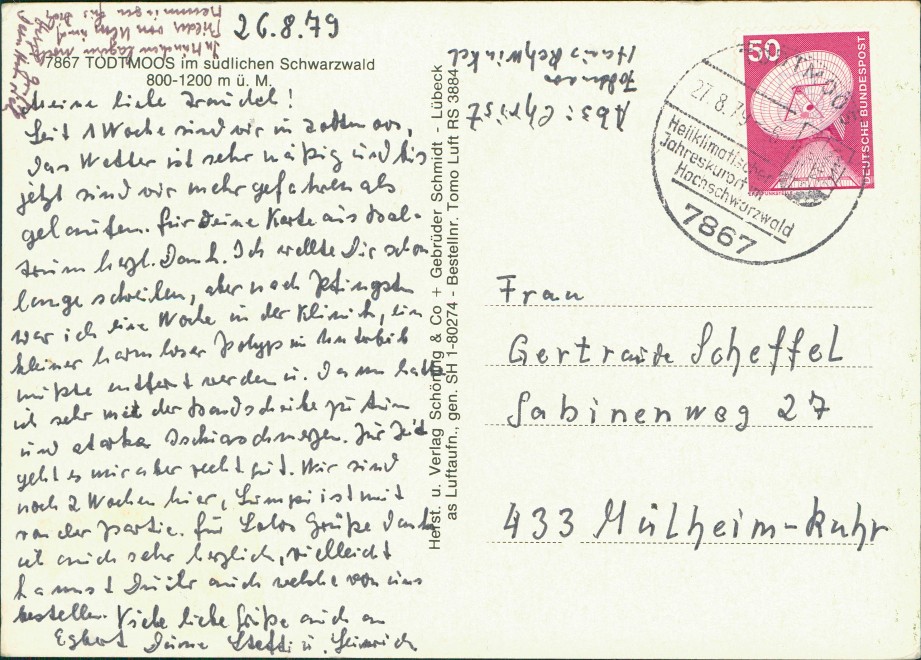 26.8.79
7867 TODTMOOS im südlichen Schwarzwald
800-1200 m ü. M.
Meine liebe Traudel!
Seit 1 Woche sind wir in Todtmoos,
das Wetter ist sehr mäßig und bis
jetzt sind wir mehr gefahren als
gelaufen. Für Deine Karte aus
herzl. Dank. Ich wollte Dir schon
lange schreiben, aber nach Pfingsten
war ich eine Woche in der Klinik, ein
kleiner harmloser Polyp im Unterleib
mußte entfernt werden u. dann hatte
ich sehr mit der Bandscheibe zu tun
und starke Ischiasschmerzen. Zur Zeit
geht es mir aber recht gut. Wir sind
noch 2 Wochen hier, Lumpi ist mit
von der Partie. Für Grüße danke
ich auch sehr herzlich, vielleicht
kannst Du ihr auch welche von uns
bestellen. Viele liebe Grüße auch an
Egbert Deine Steffi u. Heinrich
Herst. u. Verlag Schöning & Co + Gebrüder Schmidt - Lübeck
as Luftaufn., gen. SH 1-80274 - Bestellnr. Tomo Luft RS 3884
Abs: Christ
Todtmoos
Haus
50
DEUTSCHE BUNDESPOST
27.8.79
Heilklimatischer
Jahreskurort im
Hochschwarzwald
7867
Frau
Gertraude Scheffel
Sabinenweg 27
433 Mülheim-Ruhr